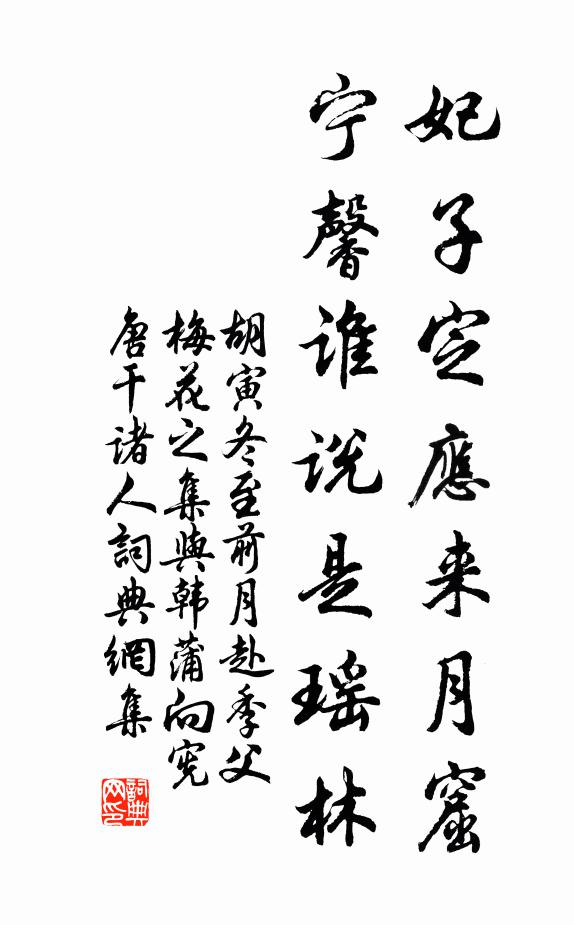 妃子定應来月窟
宁馨谁说是瑶林
胡寅冬至前月赴季父
梅花之集與韩蒲向宪
唐干诸人詞典網集
詞典网印